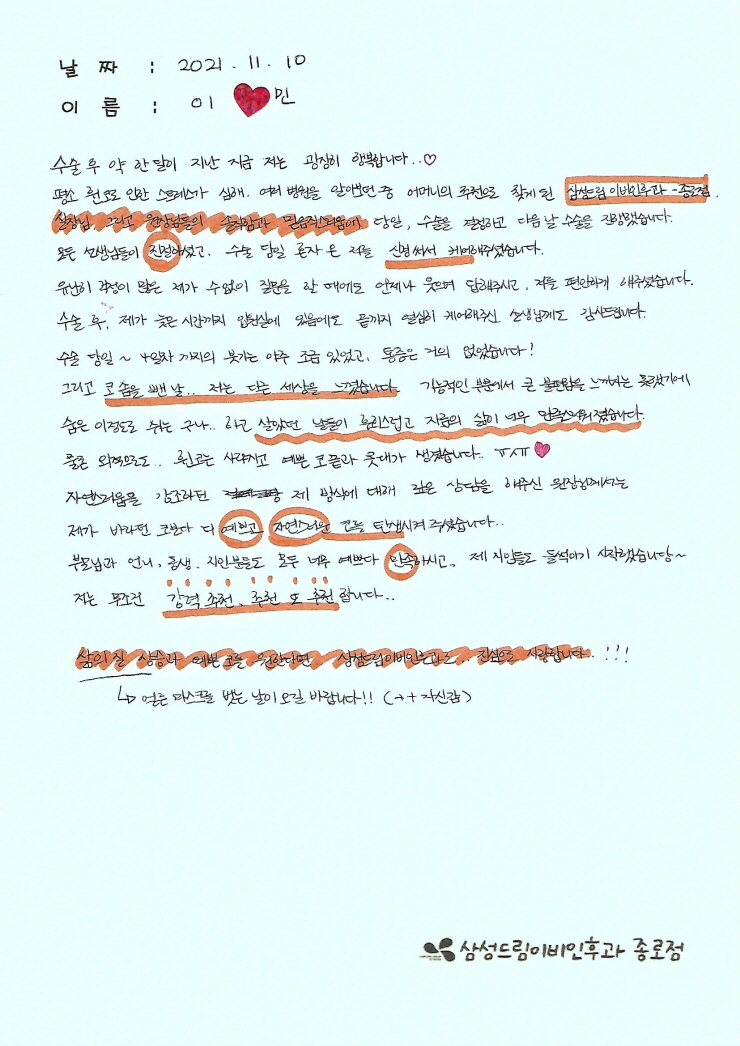 날 짜 : 2021. 11. 10
이 름 : 이 ♥ 민
수술 후 약 한 달이 지난 지금 저는 굉장히 행복합니다..♡
평소 휜코로 인한 스트레스가 심해, 여러 병원을 알아보던 중 어머니의 추천으로 찾게 된 삼성드림이비인후과 - 종로점.
실장님, 그리고 원장님들의 솔직함과 믿음직스러움에 당일, 수술을 결정하고 다음 날 수술을 진행했습니다.
모든 선생님들이 친절하셨고, 수술 당일 혼자 온 저를 신경써서 케어해주셨습니다.
유난히 걱정이 많은 제가 수없이 질문을 할 때에도 언제나 웃으며 답해주시고, 저를 편안하게 해주셨습니다.
수술 후, 제가 늦은 시간까지 입원실에 있음에도 끝까지 열심히 케어해주신 선생님께도 감사드립니다.
수술 당일 ~ 4일차 까지의 붓기는 아주 조금 있었고, 통증은 거의 없었습니다!
그리고 코 솜을 뺀 날.. 저는 다른 세상을 느꼈습니다. 기능적인 부분에서 큰 불편함을 느끼지는 못했기에
숨은 이정도로 쉬는 구나.. 하고 살았던 날들이 후회스럽고 지금의 삶이 너무 만족스러워졌습니다.
물론 외적으로도.. 휜코는 사라지고 예쁜 코끝과 콧대가 생겼습니다.. ㅠㅅㅠ ♥
자연스러움을 강조하던 제 방식에 대해 깊은 상담을 해주신 원장님께서는
제가 바라던 코보다 더 예쁘고 자연스러운 코를 탄생시켜 주셨습니다..
부모님과 언니, 동생, 지인분들도 모두 너무 예쁘다 만족하시고, 제 지인들도 들썩이기 시작했습니당~
저는 무조건 강력 추천, 추천 또 추천 합니다..
삶의 질 상승과 예쁜 코를 원한다면.. 삼성드림이비인후과로.. 진심으로 사랑합니다..!!!
↳ 얼른 마스크를 벗는 날이 오길 바랍니다!! (++자신감)
삼성드림이비인후과 종로점